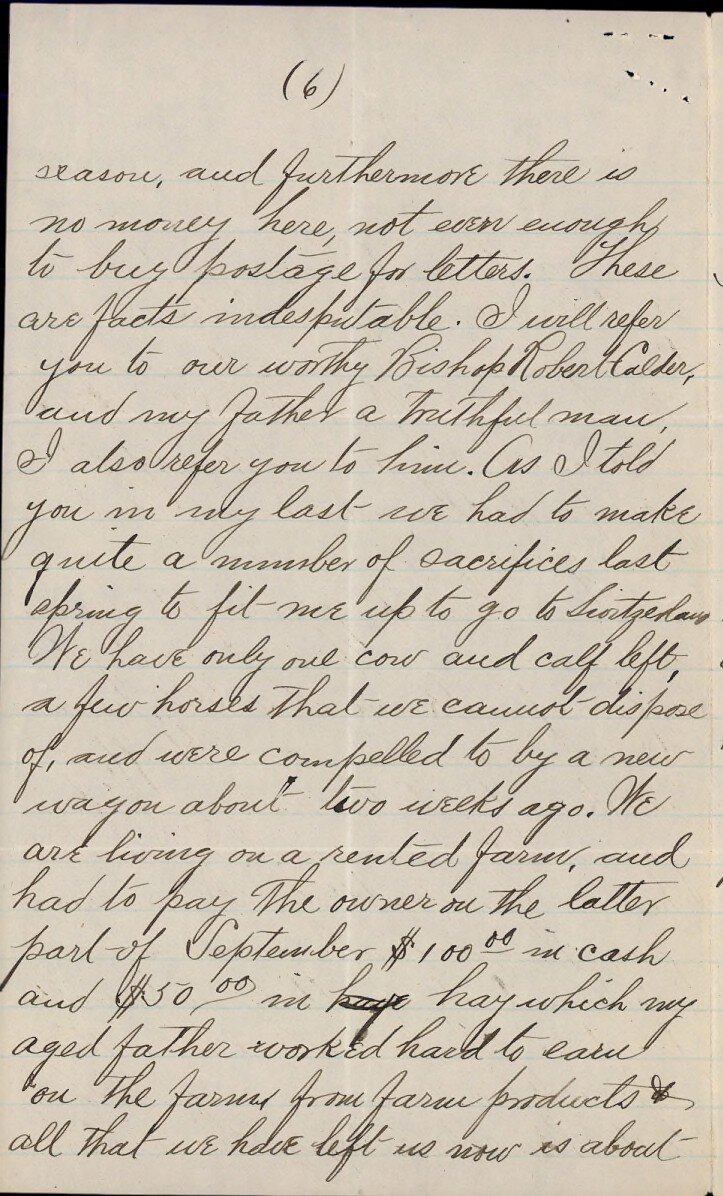 (6)
season, and furthermore there is
no money here, not even enough
to buy postage for letters. These
are facts indesputable. I will refer
you to our worthy Bishop Robert Calder,
and my father a truthful man,
I also refer you to him. As I told
you in my last we had to make
quite a number of sacrifices last
spring to fit me up to go to Switzerland
We have only one cow and calf left,
a few horses that we cannot dispose
of, and were compelled to by a new
wagon about two weeks ago. We
are living on a rented farm, and
had to pay the owner on the latter
part of September $100 00 in cash
and $50 00 in hay which my
aged father worked hard to earn
on the farm from farm products &
all that we have left us now is about